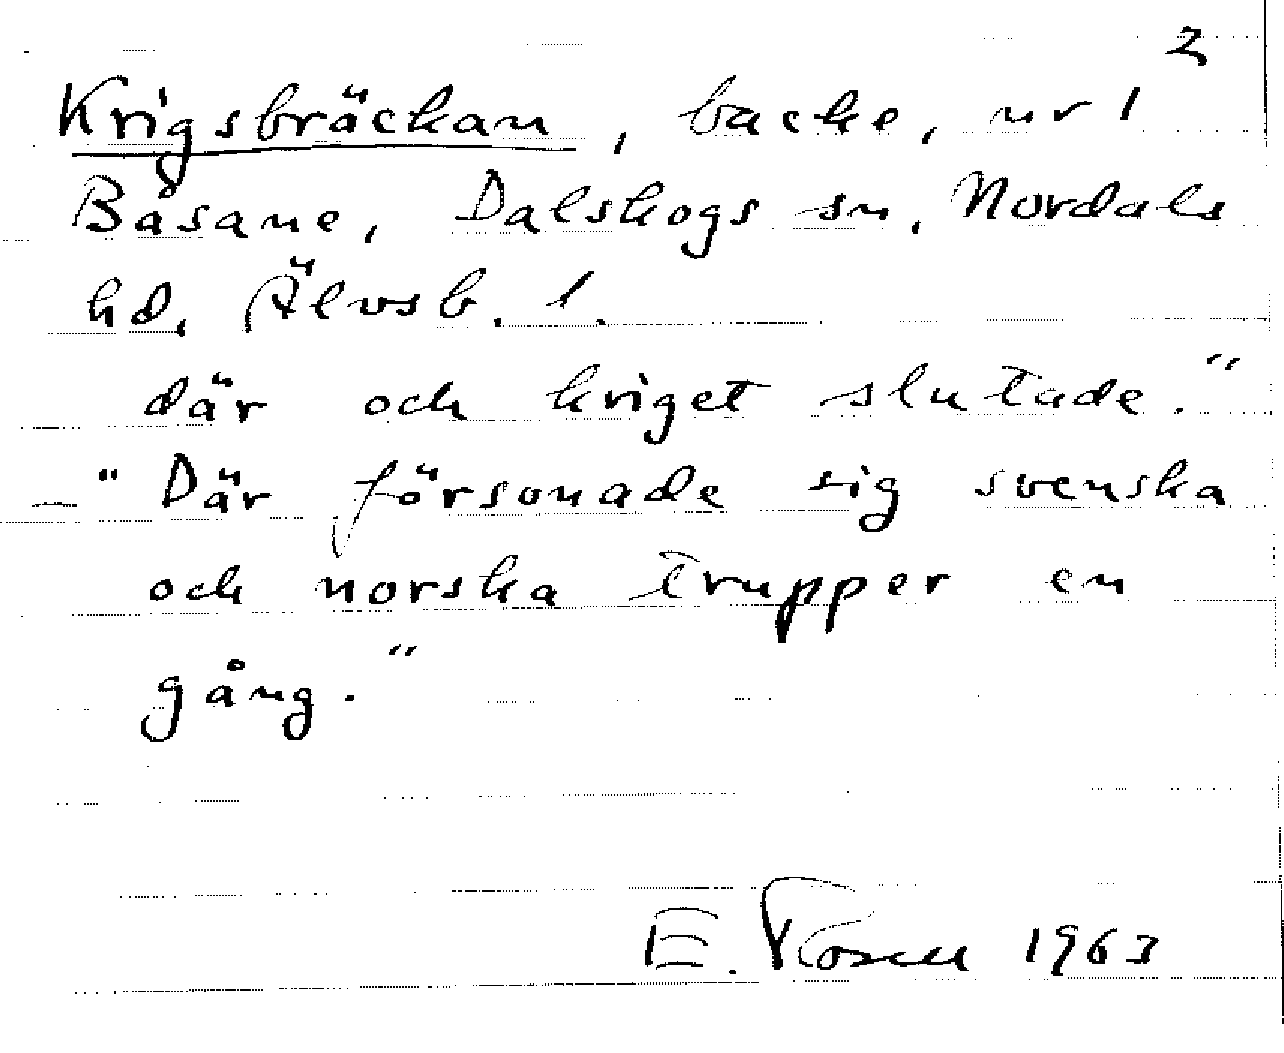 2
Krigsbräckan, backe, nr 1
Båsane, Dalskogs sn, Nordals
hd, Älvsb. l.
där och kriget slutade."
– "Där försonade sig svenska
och norska trupper en
gång."
E. Rosell 1963